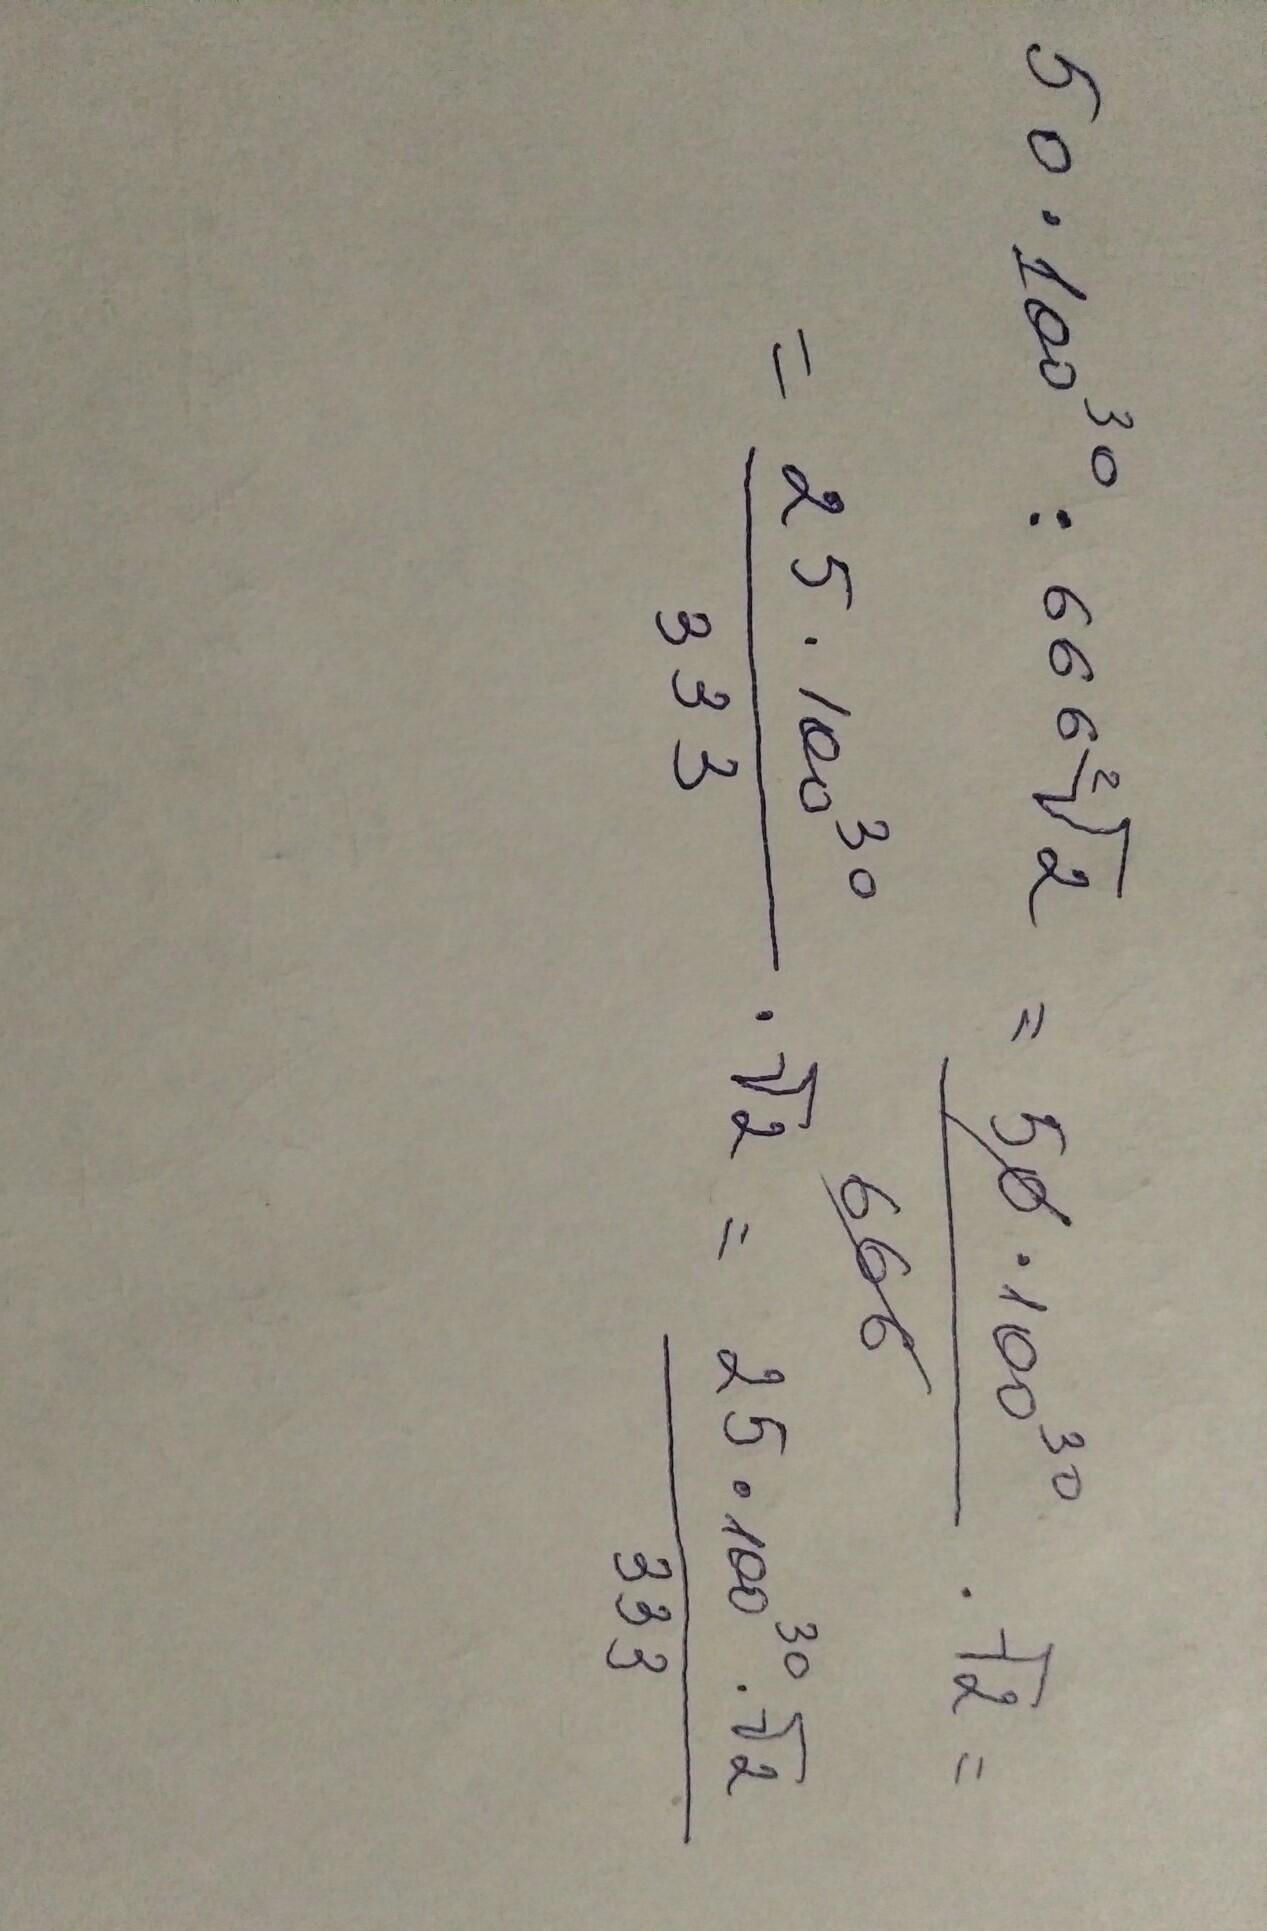 50 · 100³⁰ : 666 ²√2 = 50 · 100³⁰ / 666 · √2 =
= 25 · 100³⁰ / 333 · √2 = 25 · 100³⁰ · √2 / 333